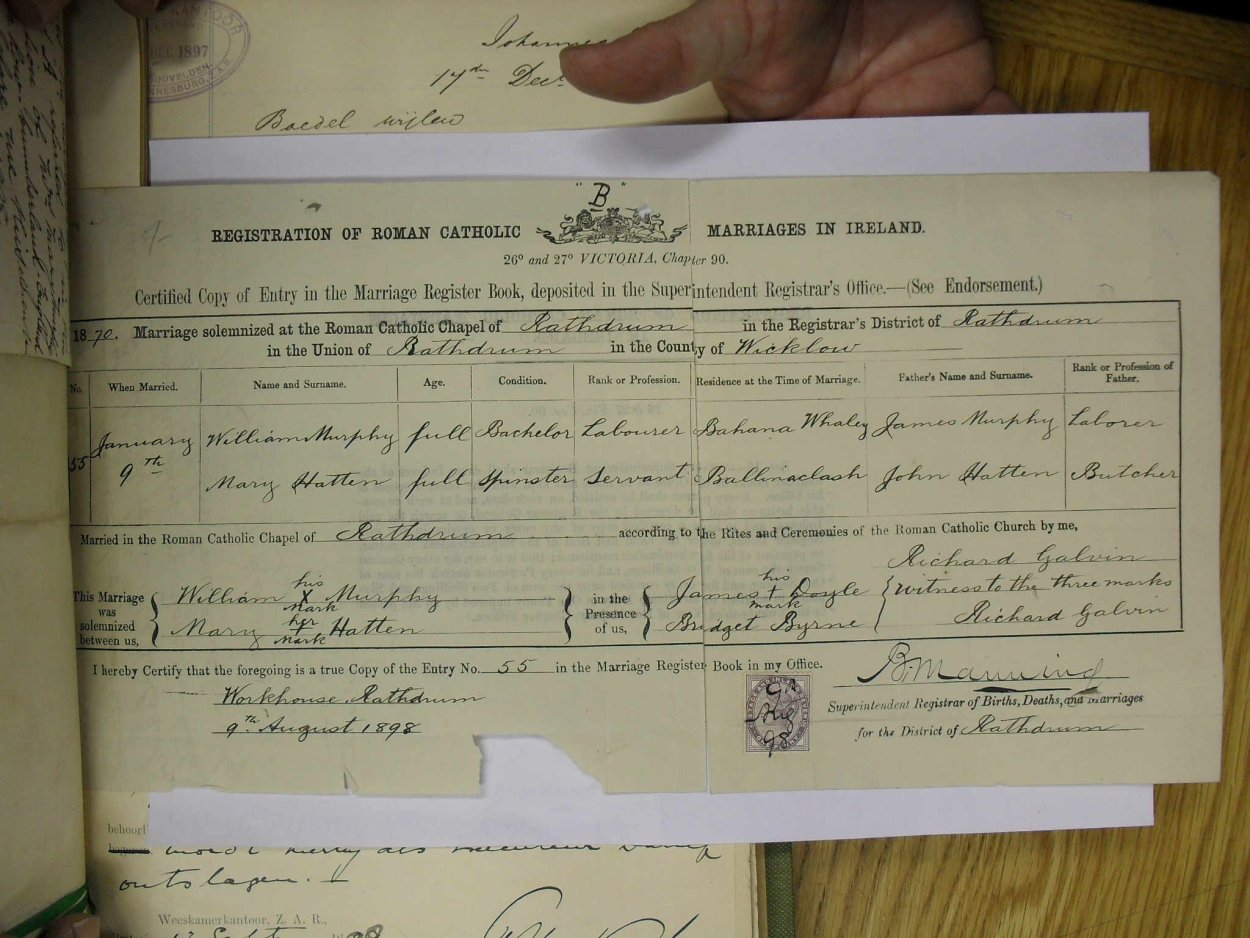 KANTOOR
DEC. 1897
GOUDVELDEN
JOHANNESBURG, ZAR
17de Decr
Boedel wijlen
"B"
REGISTRATION OF ROMAN CATHOLIC MARRIAGES IN IRELAND.
26º and 27º VICTORIA, Chapter 90.
Certified Copy of Entry in the Marriage Register Book, deposited in the Superintendent Registrar's Office.—(See Endorsement.)
1870. Marriage solemnized at the Roman Catholic Chapel of Rathdrum in the Registrar's District of Rathdrum
in the Union of Rathdrum in the County of Wicklow
No. When Married. Name and Surname. Age. Condition. Rank or Profession. Residence at the Time of Marriage. Father's Name and Surname. Rank or Profession of Father.
55 January 9th William Murphy full Bachelor Labourer Bahana Whaley James Murphy Laborer
Mary Hatten full Spinster Servant Ballinaclash John Hatten Butcher
Married in the Roman Catholic Chapel of Rathdrum according to the Rites and Ceremonies of the Roman Catholic Church by me,
Richard Galvin
This Marriage was solemnized between us,
William his X mark Murphy
Mary her + mark Hatten
in the Presence of us,
James his + mark Doyle
Bridget Byrne
witness to the three marks
Richard Galvin
I hereby Certify that the foregoing is a true Copy of the Entry No. 55 in the Marriage Register Book in my Office.
Workhouse, Rathdrum
9th August 1898
9th
Aug
98
B. Manning
Superintendent Registrar of Births, Deaths, and Marriages
for the District of Rathdrum
behoorl
outslagen.
Weeskamerkantoor, Z. A. R.,